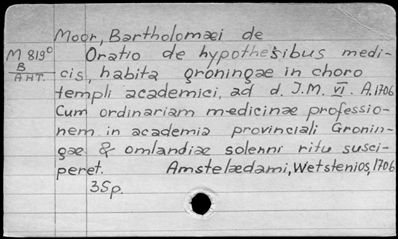 Moor, Bartholomæi de
M 819° Oratio de hypothesibus medi-
B
A HT. cis, habita groningæ in choro
templi academici, ad d. I.M. VI. A.1706
Cum ordinariam medicinæ professio-
nem in academia provinciali Gronin-
gæ & omlandiæ solenni ritu susci-
peret. Amstelædami, Wetstenios, 1706
35p.